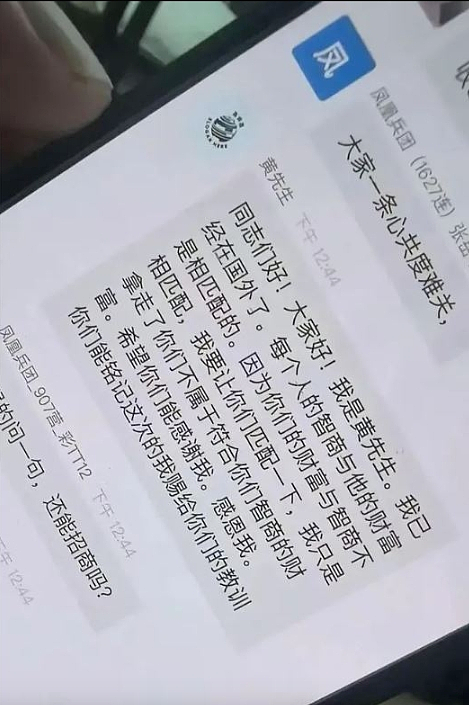 凤
凤凰兵团（1627连）张岳
大家一条心共度难关，
SLOGAN HERE
黄先生 下午 12:44
同志们好！大家好！我是黄先生。我已
经在国外了。每个人的智商与他的财富
是相匹配的。因为你们的财富与智商不
相匹配，我要让你们匹配一下，我只是
拿走了你们不属于符合你们智商的财
富。希望你们能感谢我。感恩我。
你们能铭记这次的我赐给你们的教训
凤凰兵团_907营_彩TT12 下午 12:44
的问一句，还能招商吗?
下午 12:44